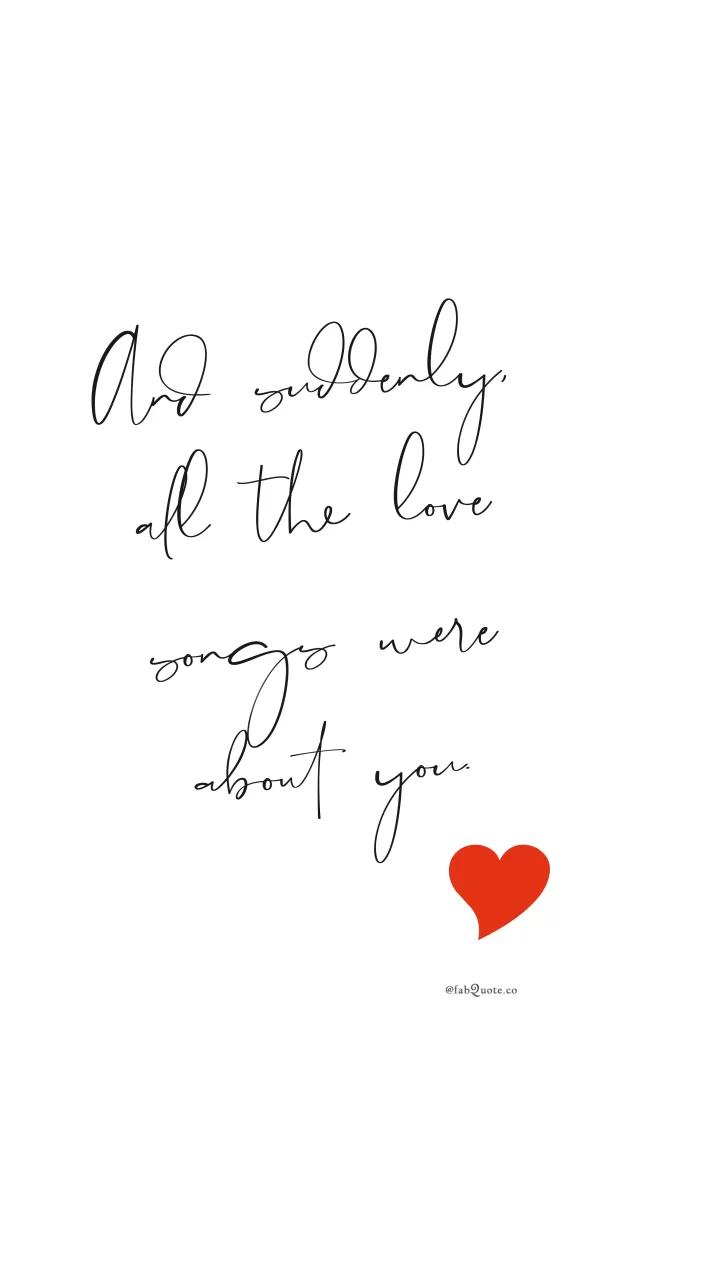 And suddenly,
all the love
songs were
about you.
@fabQuote.co